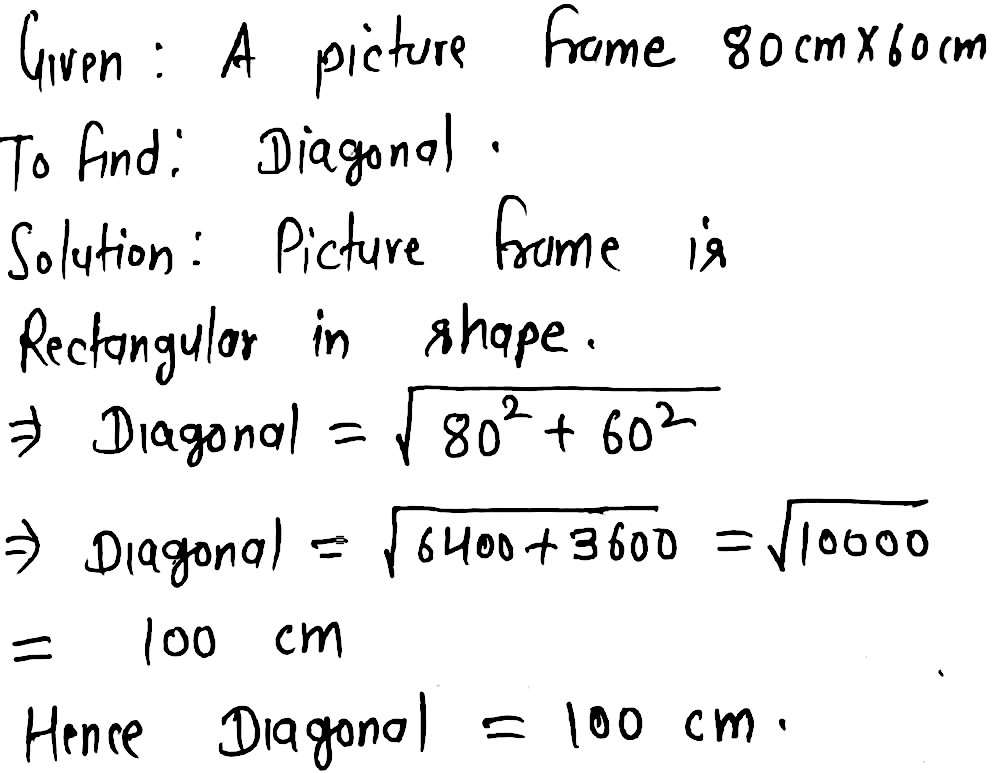 Given : A picture frame 80 cm X 60 cm
To find : Diagonal .
Solution : Picture frame is
Rectangular in shape .
⇒ Diagonal = √80² + 60²
⇒ Diagonal = √6400 + 3600 = √10000
= 100 cm
Hence Diagonal = 100 cm .